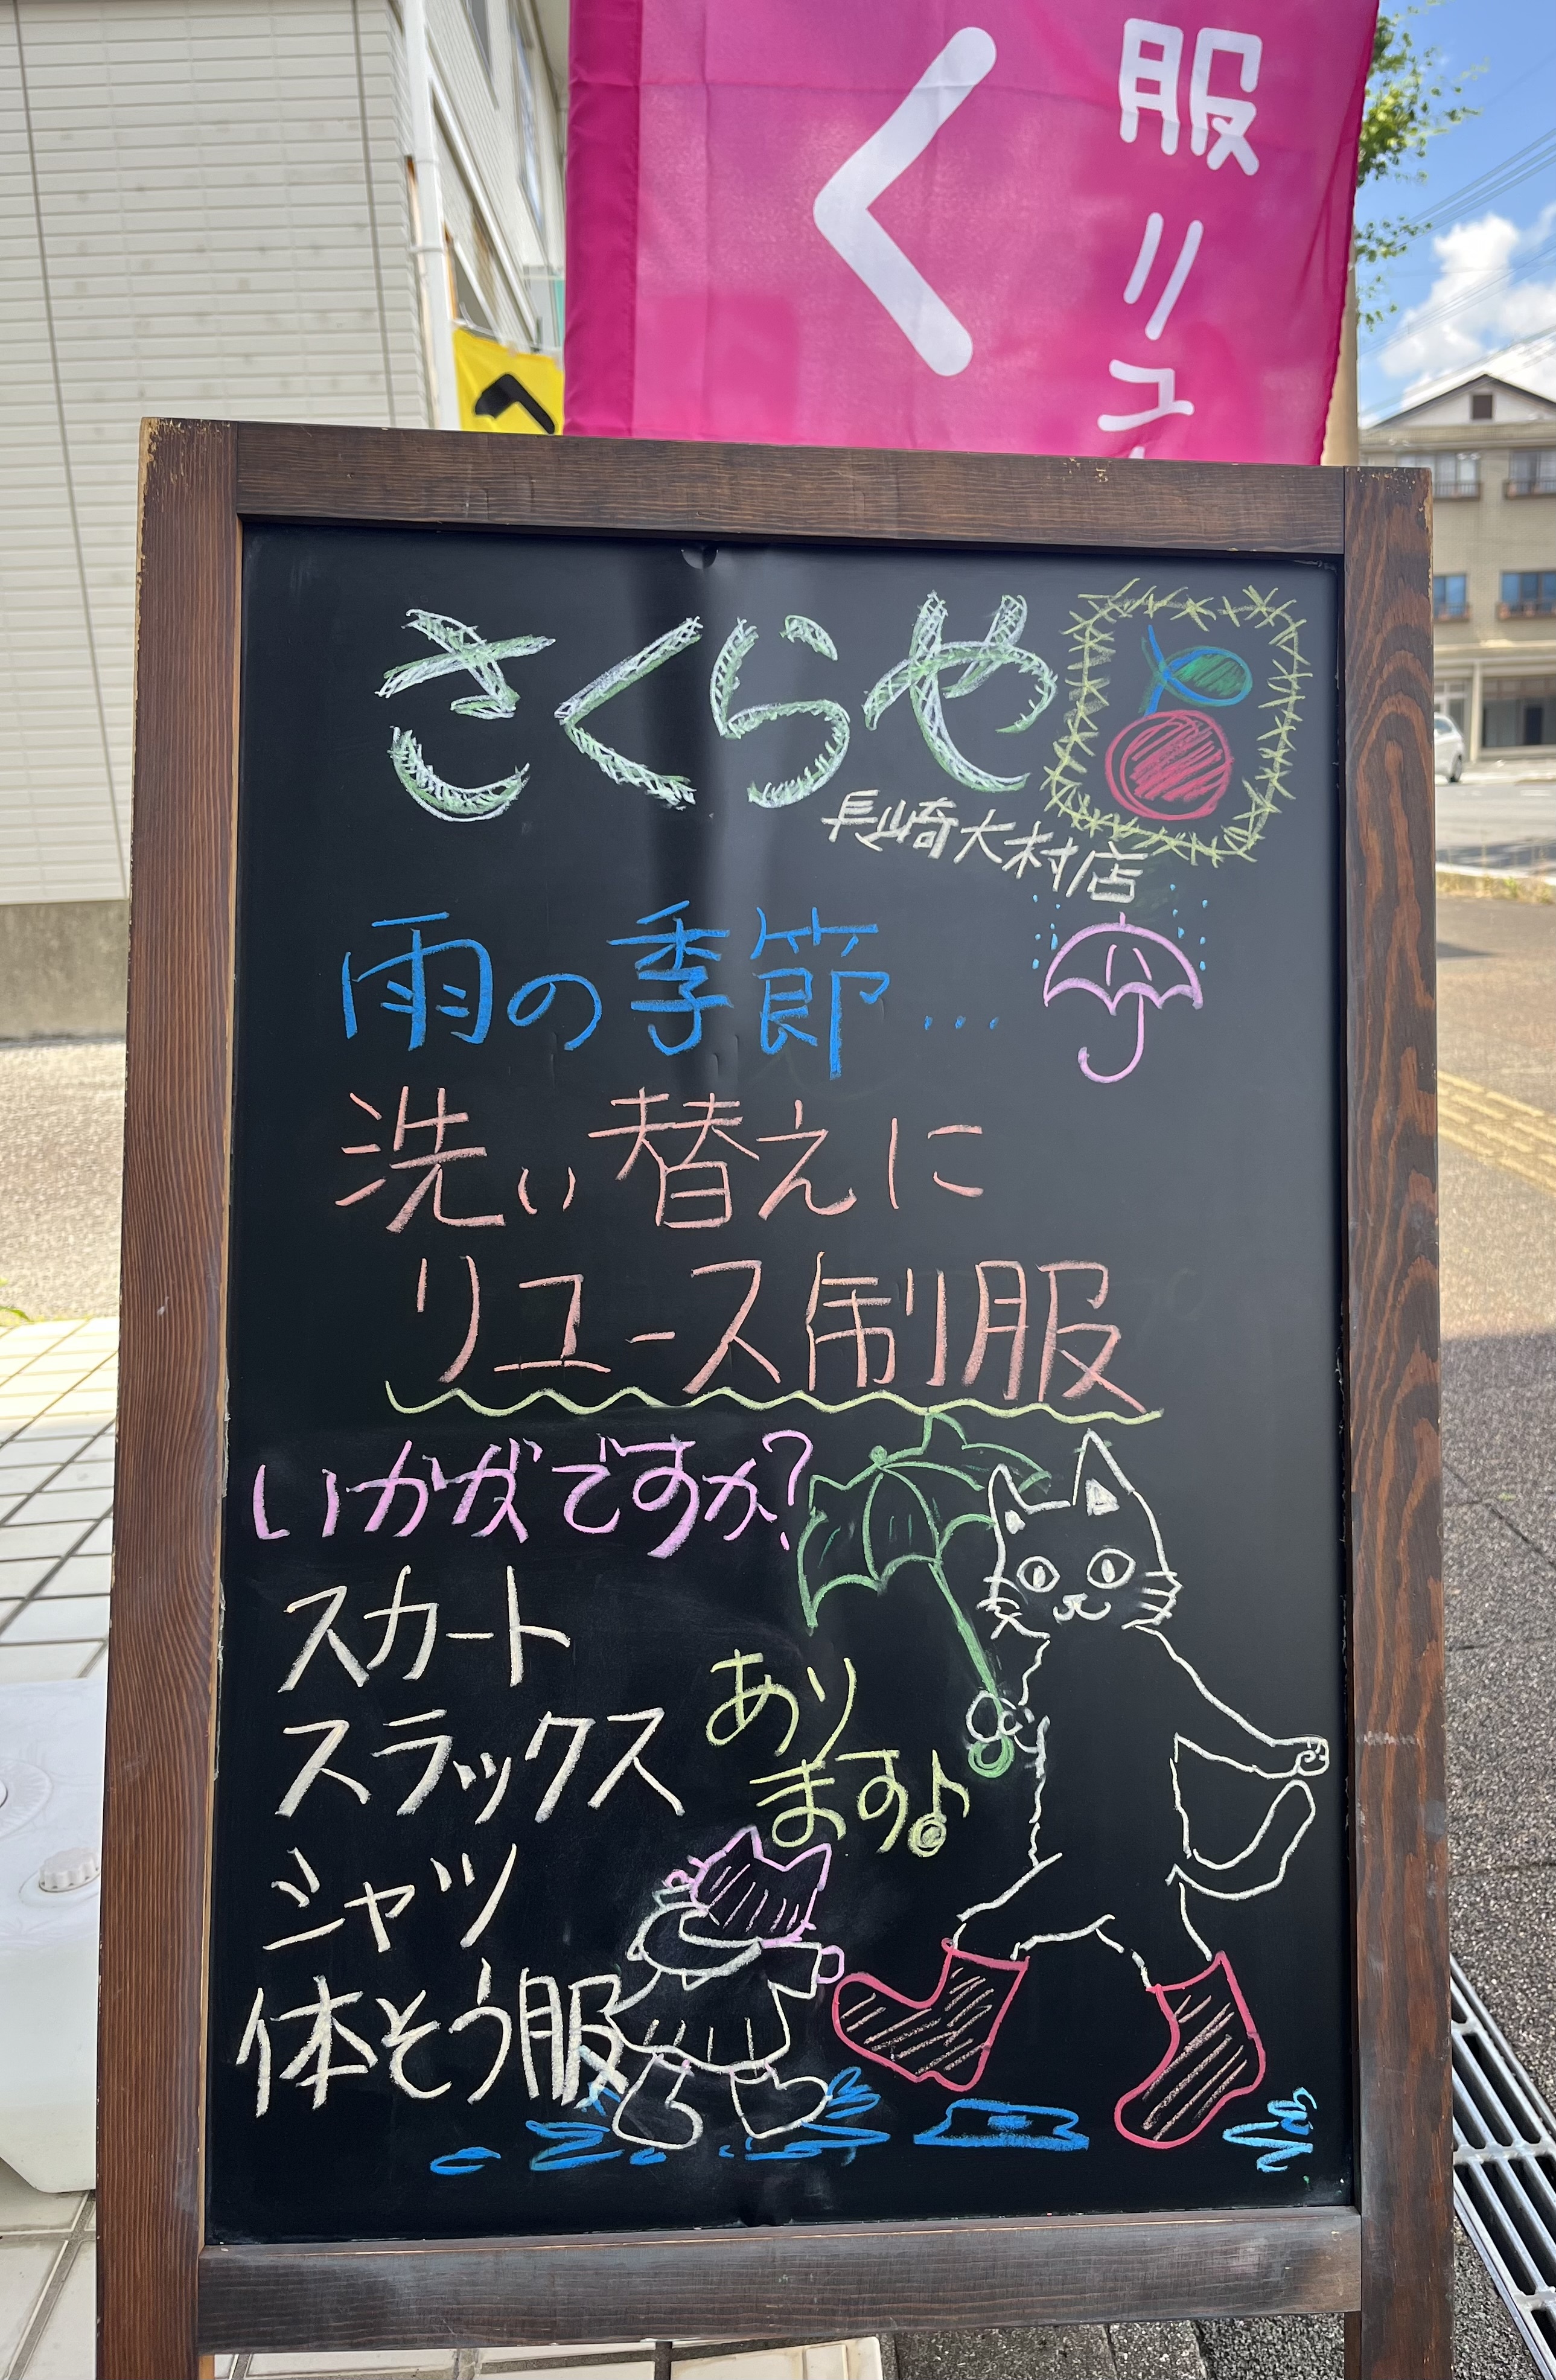 く
服リユ
へ
さくらや
長崎大村店
雨の季節…
洗い替えに
リユース制服
いかがですか?
スカート
スラックス
シャツ
体そう服
あり
ます♪